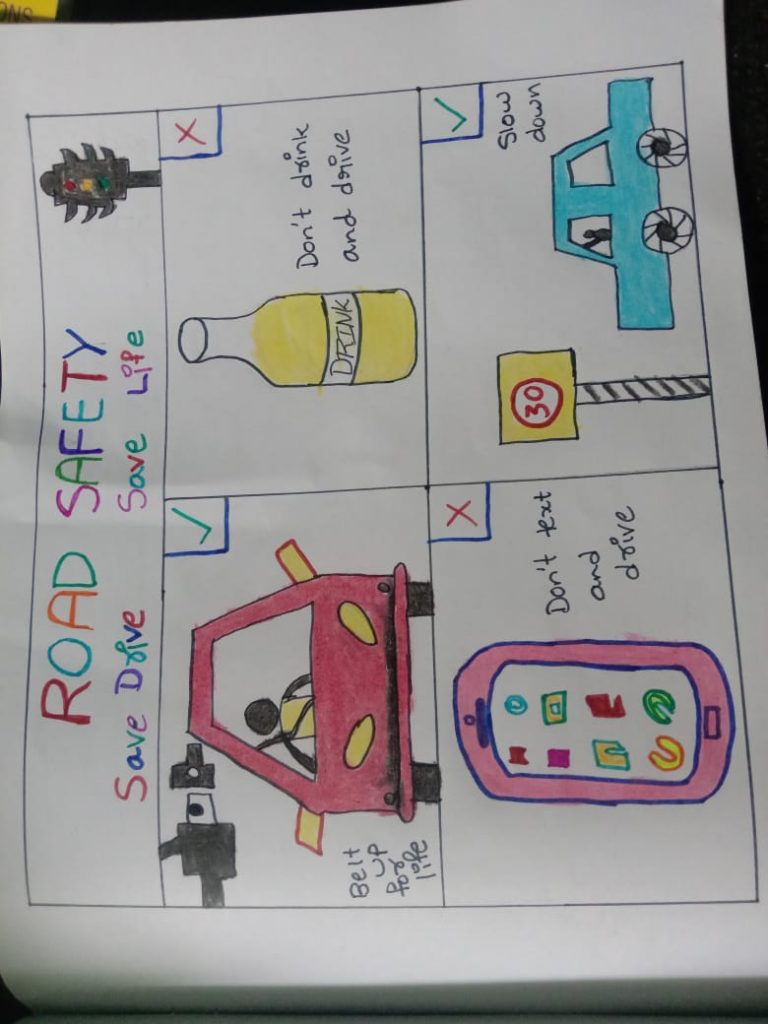 ROAD SAFETY
Save Drive Save Life
Belt
up
for
life
Don't drink
and drive
DRINK
Don't text
and
drive
30
Slow
down